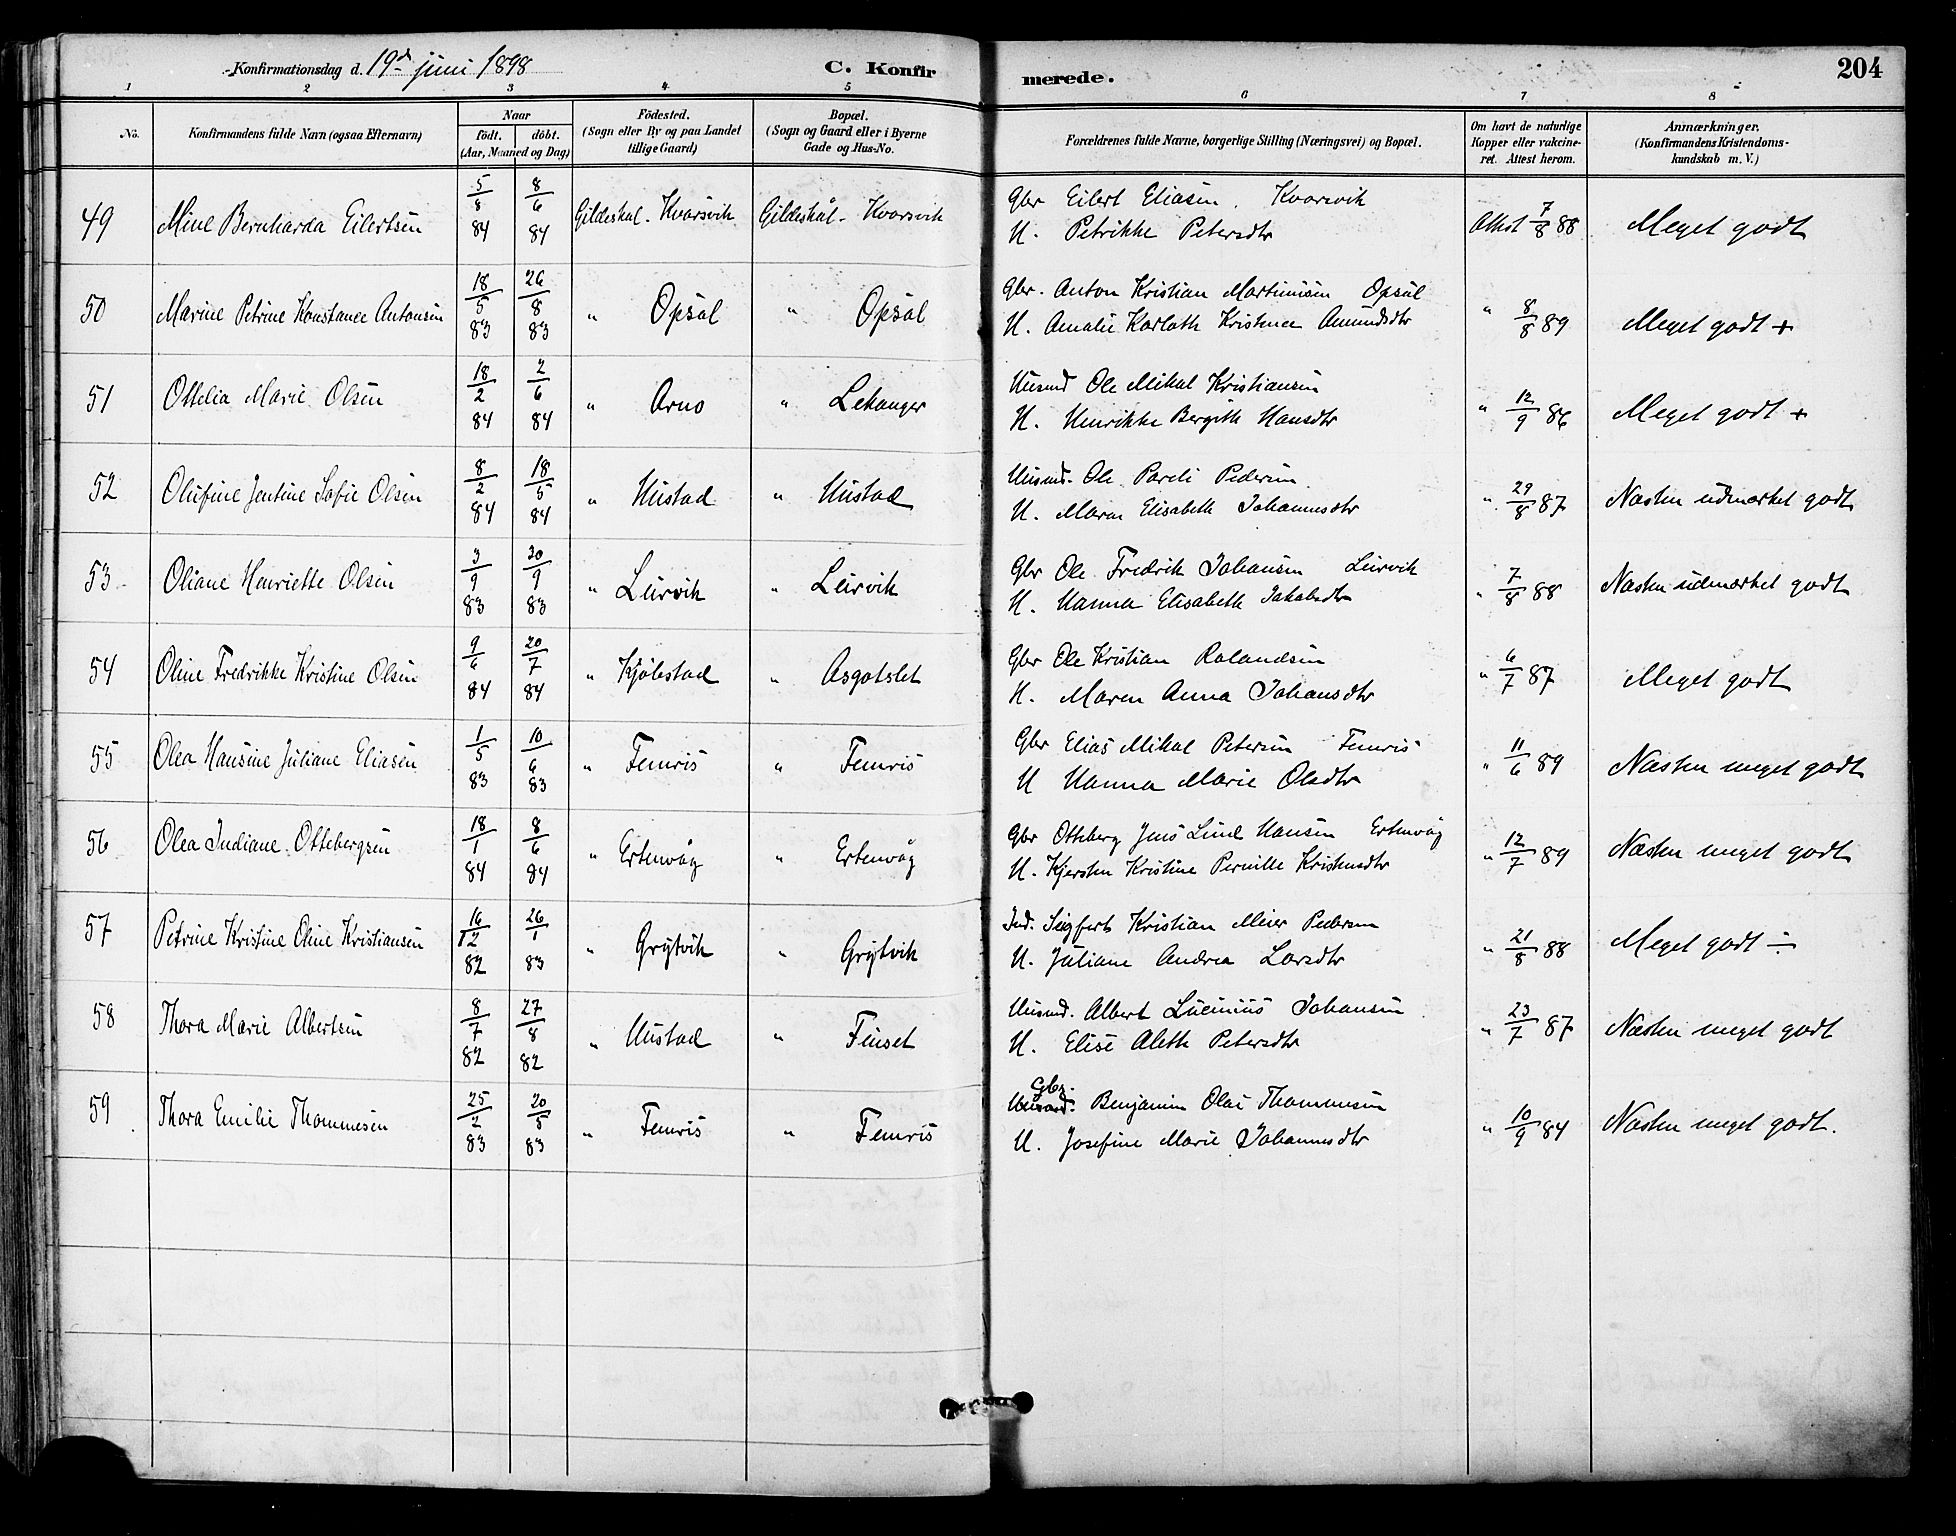 Konfirmationsdag d. 19de juni 1898 C. Konfirmerede. 204
1 2 3 4 5 6 7 8
No. Konfirmandens fulde Navn (ogsaa Efternavn) Naar födt. döbt. (Aar, Maaned og Dag) Födested. (Sogn eller By og paa Landet tillige Gaard) Bopæl. (Sogn og Gaard eller i Byerne Gade og Hus-No. Forældrenes fulde Navne, borgerlige Stilling (Næringsvei) og Bopæl. Om havt de naturlige Kopper eller vakcineret. Attest herom. Anmærkninger. (Konfirmandens Kristendomskundskab m. V.)
49 Mine Bernharda Eilertsen 5/8 84 8/6 84 Gildeskal. Kvarsvik Gildeskål. Kvarsvik Gbr Eilert Eliasen. Kvarsvik
H. Petrikke Petersdtr Attest 7/8 88 Meget godt
50 Marine Petrine Konstance Antonsen 18/5 83 26/8 83 " Opsal " Opsal Gbr. Anton Kristian Martinisen Opsal
H. Amalie Karloth Kristence Amundsdtr " 8/8 89 Meget godt +
51 Ottelia Marie Olsen 18/2 84 2/6 84 " Arnø " Lekanger Husmd Ole Mikal Kristiansen
H. Henrikke Bergith Hansdtr " 12/9 86 Meget godt +
52 Olufine Jentine Sofie Olsen 8/2 84 18/5 84 " Hustad " Hustad Husmd. Ole Pareli Pedersen
H. Maren Elisabeth Johannesdtr " 29/8 87 Næsten udmærket godt
53 Oliane Henriette Olsen 3/9 83 30/9 83 " Leirvik " Leirvik Gbr Ole Fredrik Johansen Leirvik
H. Hanna Elisabeth Jakobsdtr " 7/8 88 Næsten udmærket godt
54 Oline Fredrikke Kristine Olsen 9/6 84 20/7 84 " Kjölestad " Asgotslet Gbr Ole Kristian Rolandsen
H. Maren Anna Johansdtr " 6/7 87 Meget godt
55 Olea Hansine Juliane Eliasen 1/5 83 10/6 83 " Femris " Femris Gbr Elias Mikal Petersen Femris
H Hanna Marie Olsdtr " 11/6 89 Næsten meget godt
56 Olea Indiane Ottebergsen 18/1 84 8/6 84 " Ertenvåg " Ertenvåg Gbr Otteberg Jens Lund Hansen Ertenvåg
H. Kjersten Kristine Pernille Kristensdtr " 12/7 89 Næsten meget godt
57 Petrine Kristine Oline Kristiansen 16/12 82 26/1 83 " Grytvik " Grytvik Ind. Seigfert Kristian Meier Pedersen
H. Juliane Andrea Larsdtr " 21/8 88 Meget godt ÷
58 Thora Marie Albertsen 8/7 82 27/8 82 " Hustad " Finset Husmd. Albert Lucinius Johansen
H. Elise Aleth Petersdtr " 23/7 87 Næsten meget godt
59 Thora Emilie Thommesen 25/2 83 20/5 83 " Femris " Femris Gbr. Benjamin Olai Thommesen
H. Josefine Marie Johannesdtr " 10/9 84 Næsten meget godt.